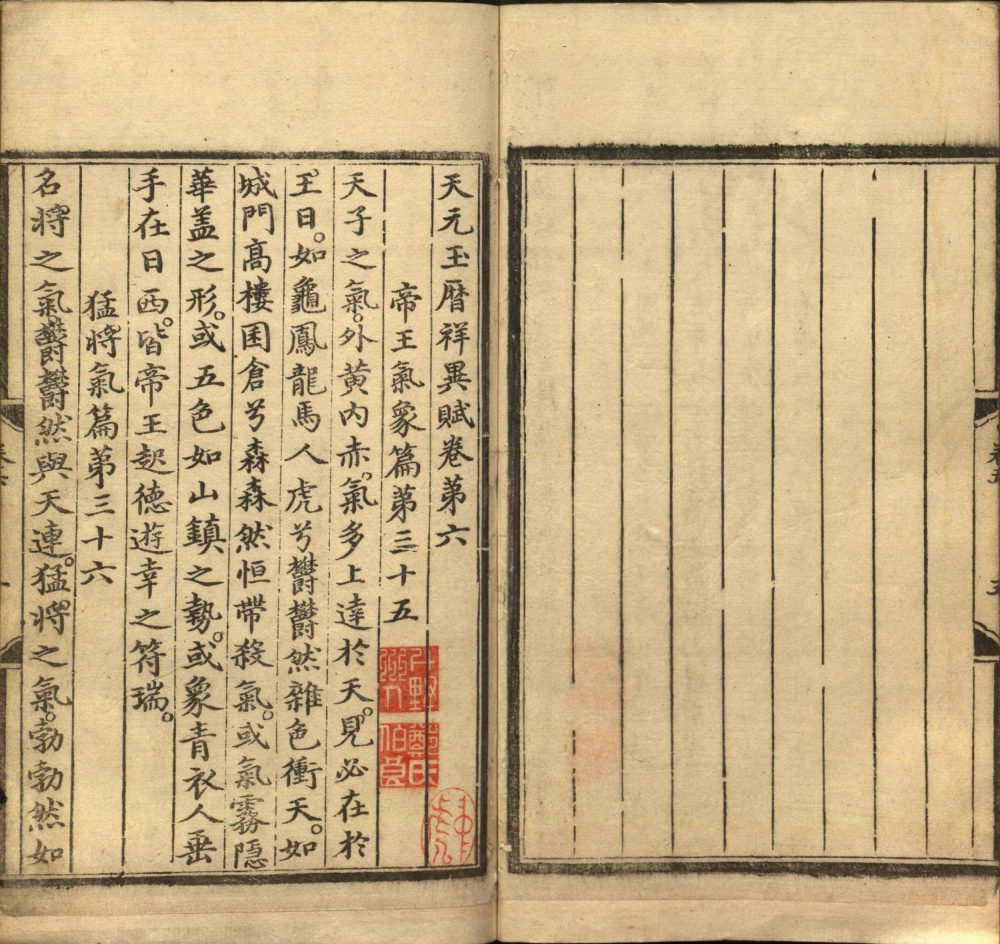 卷五
五
天元玉曆祥異賦卷第六
帝王氣象篇第三十五
天子之氣。外黃內赤。氣多上達於天。見必在於
王日。如龜鳳龍馬人虎兮鬱鬱然雜色衝天。如
城門髙樓囷倉兮森森然恒帶殺氣。或氣霧隱
華盖之形。或五色如山鎮之勢。或象青衣人垂
手在日西。皆帝王起德遊幸之符瑞。
猛將氣篇第三十六
名將之氣鬱鬱然與天連。猛將之氣。勃勃然如